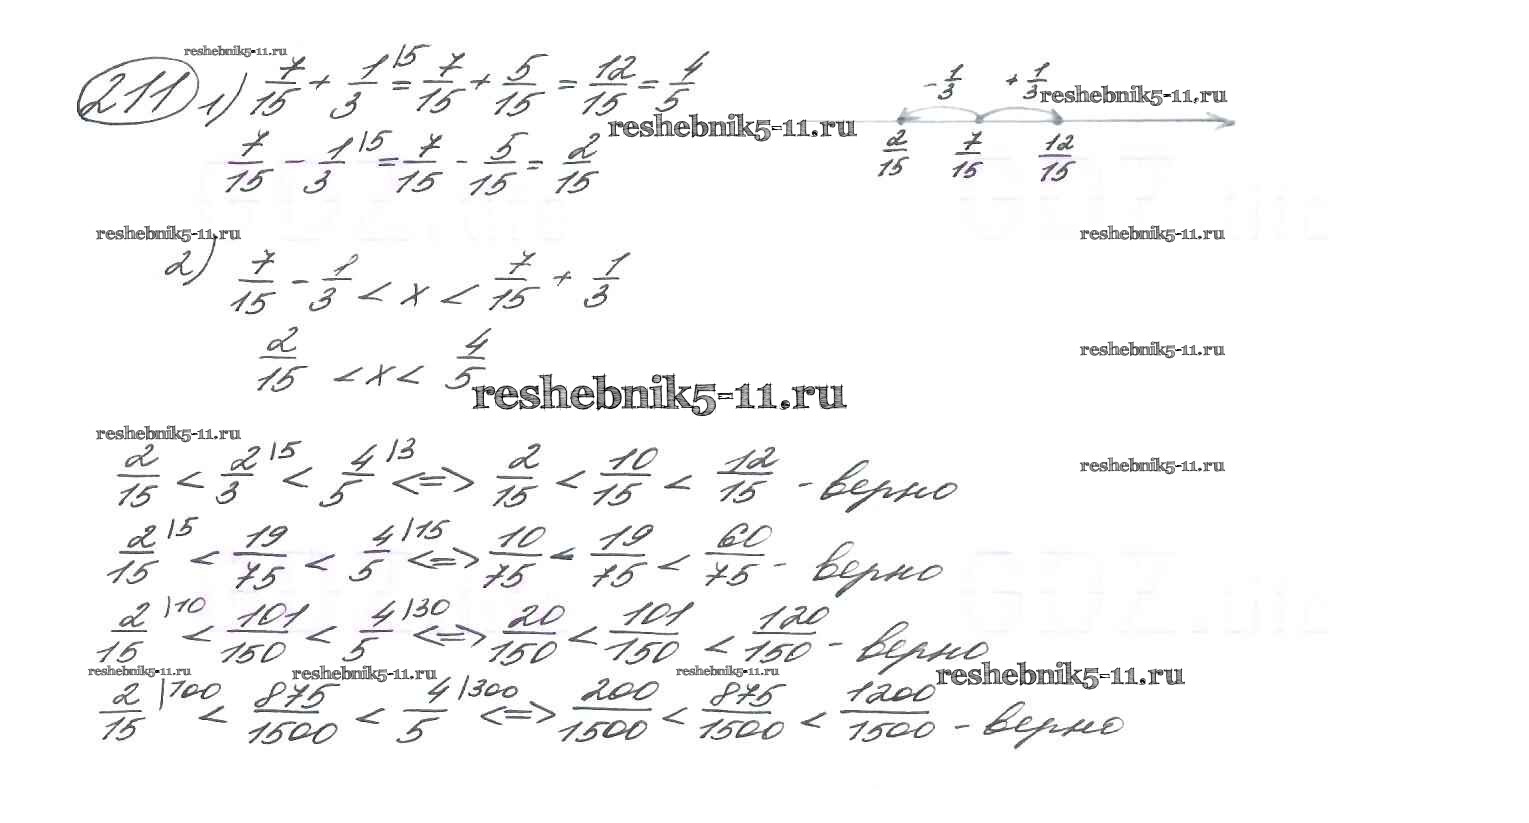 reshebnik5-11.ru
211 1) 7/15 + 1/3 |5 = 7/15 + 5/15 = 12/15 = 4/5
- 1/3 + 1/3
reshebnik5-11.ru
reshebnik5-11.ru
7/15 - 1/3 |5 = 7/15 - 5/15 = 2/15
2/15 7/15 12/15
reshebnik5-11.ru reshebnik5-11.ru
2) 7/15 - 1/3 < x < 7/15 + 1/3
2/15 < x < 4/5
reshebnik5-11.ru
reshebnik5-11.ru
reshebnik5-11.ru
2/15 < 2/3 |5 < 4/5 |3 <=> 2/15 < 10/15 < 12/15 - верно
reshebnik5-11.ru
2/15 |5 < 19/75 < 4/5 |15 <=> 10/75 < 19/75 < 60/75 - верно
2/15 |10 < 101/150 < 4/5 |30 <=> 20/150 < 101/150 < 120/150 - верно
reshebnik5-11.ru reshebnik5-11.ru reshebnik5-11.ru reshebnik5-11.ru
2/15 |100 < 875/1500 < 4/5 |300 <=> 200/1500 < 875/1500 < 1200/1500 - верно